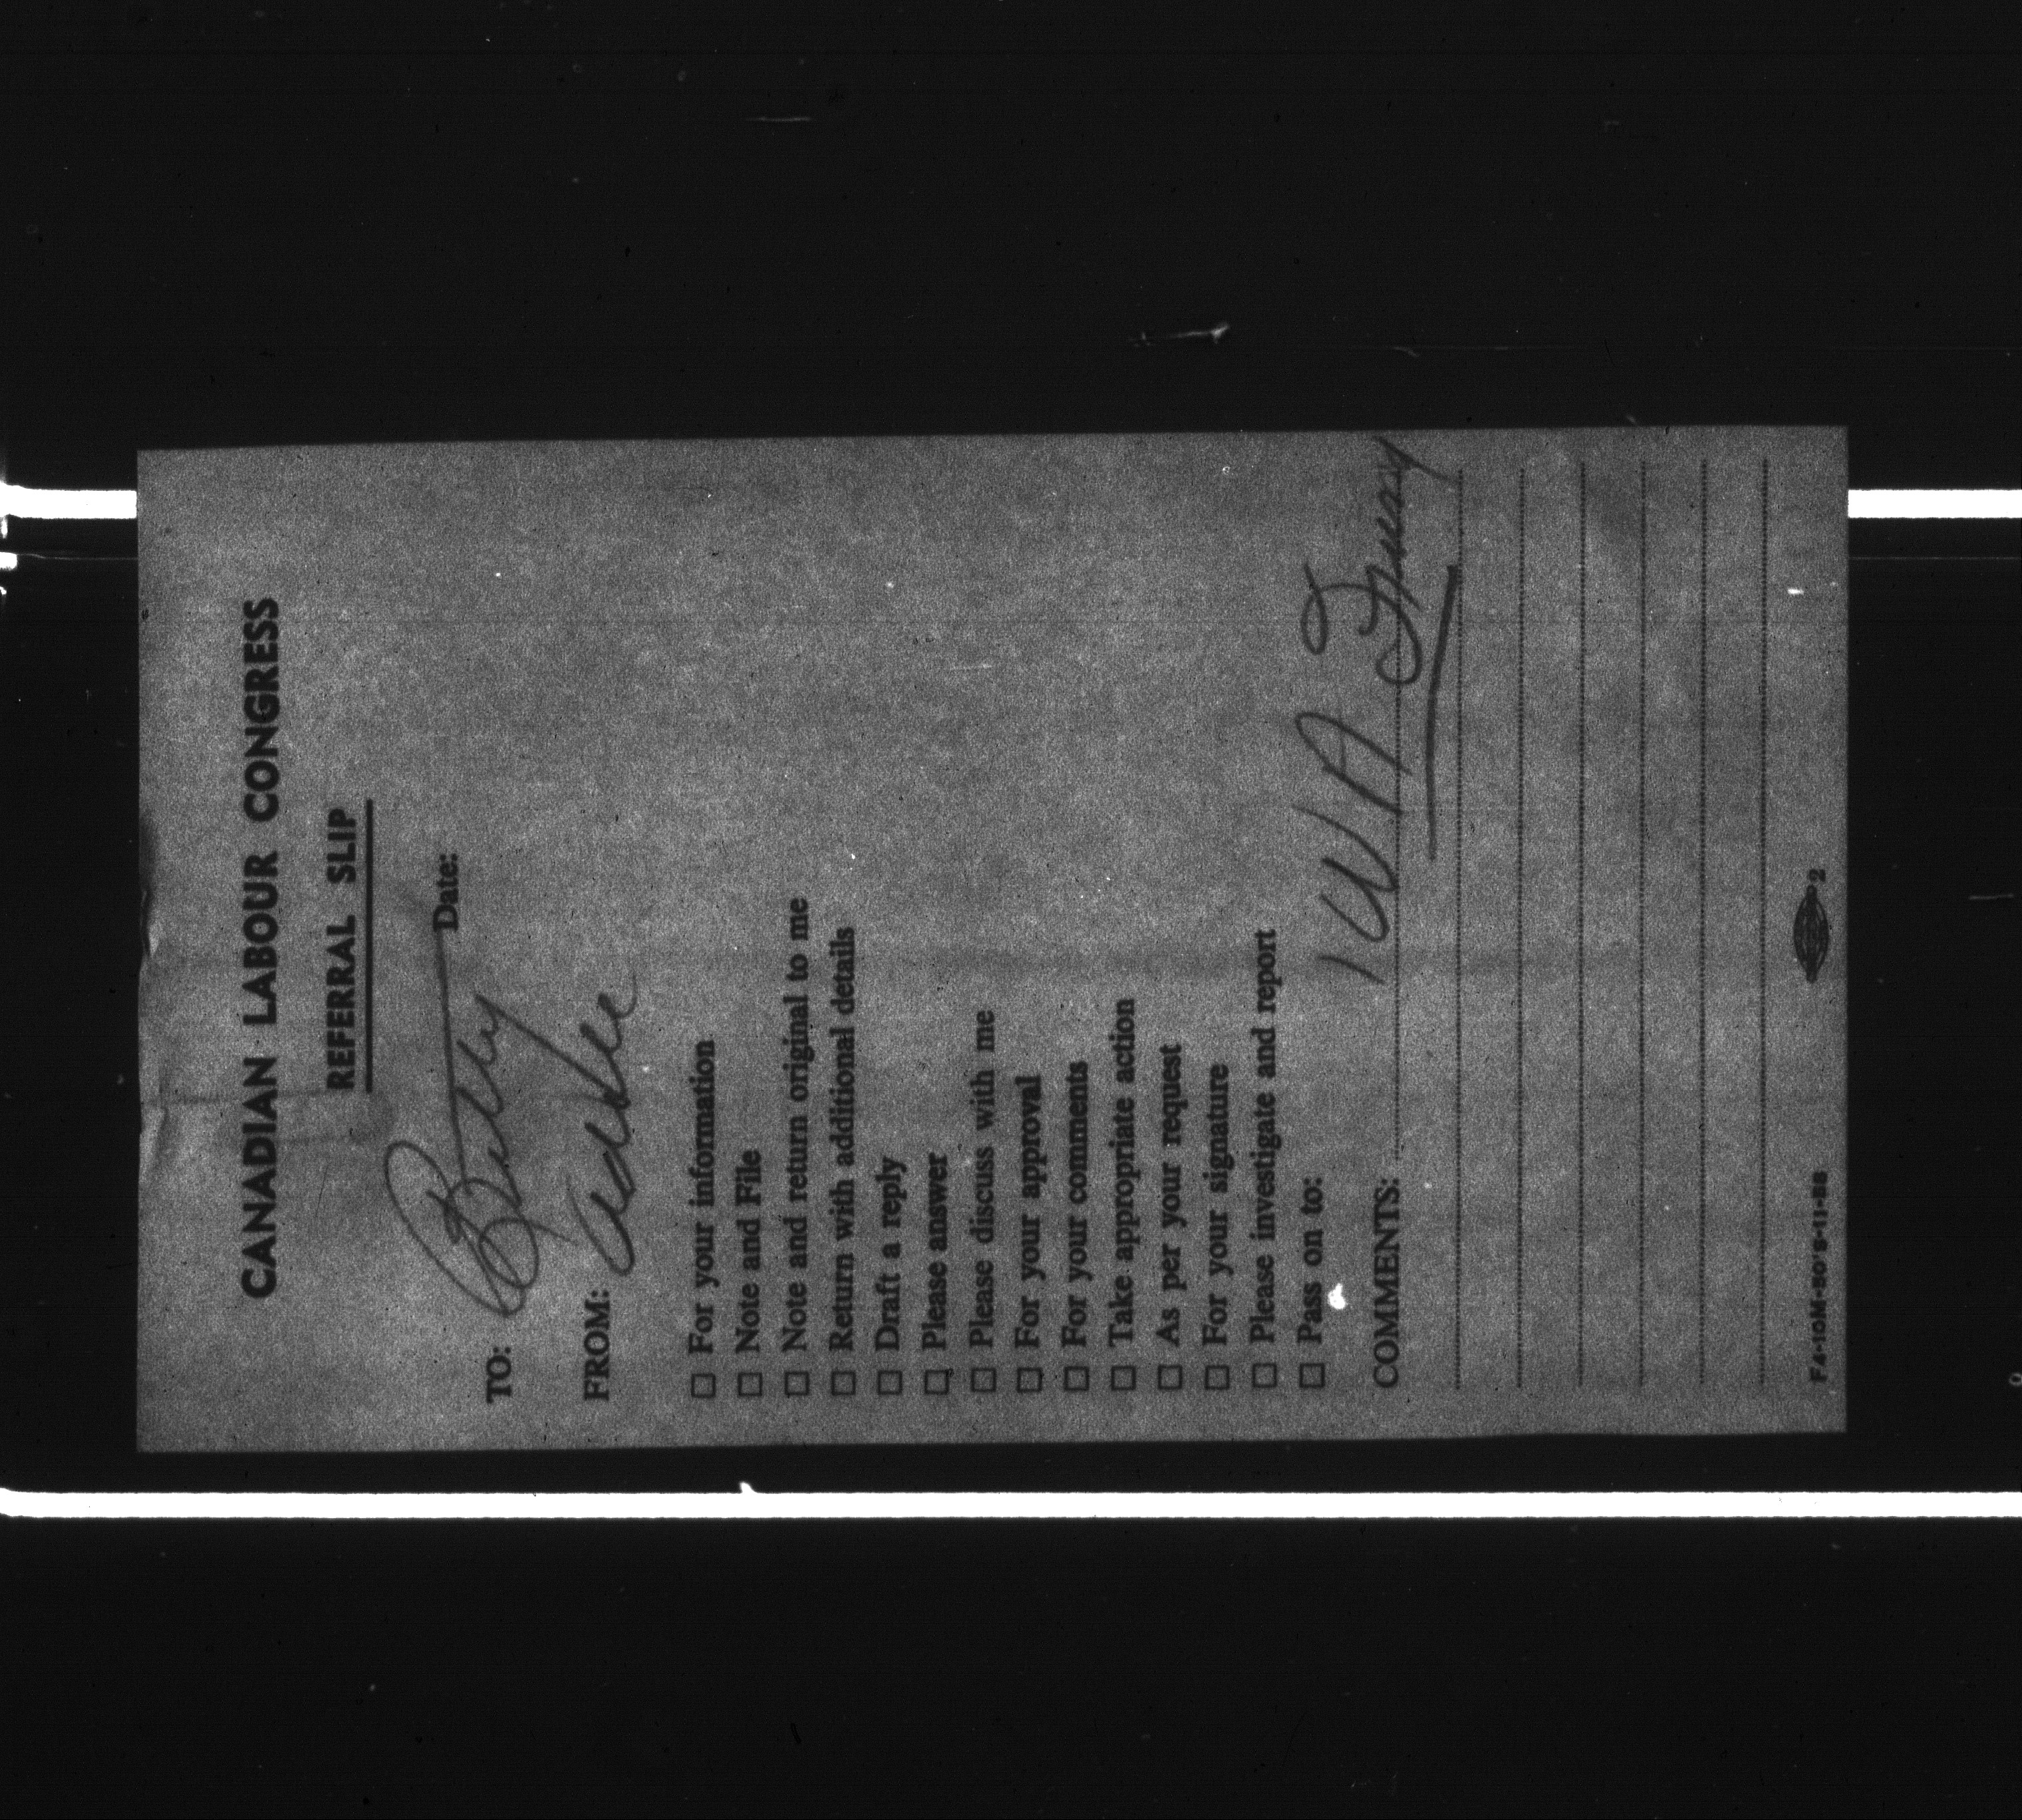 CANADIAN LABOUR CONGRESS
REFERRAL SLIP
Date:
TO: Billy
FROM:
☐ For your information
☐ Note and File
☐ Note and return original to me
☐ Return with additional details
☐ Draft a reply
☐ Please answer
☐ Please discuss with me
☐ For your approval
☐ For your comments
☐ Take appropriate action
☐ As per your request
☐ For your signature
☐ Please investigate and report
☐ Pass on to:
COMMENTS: IWA
2